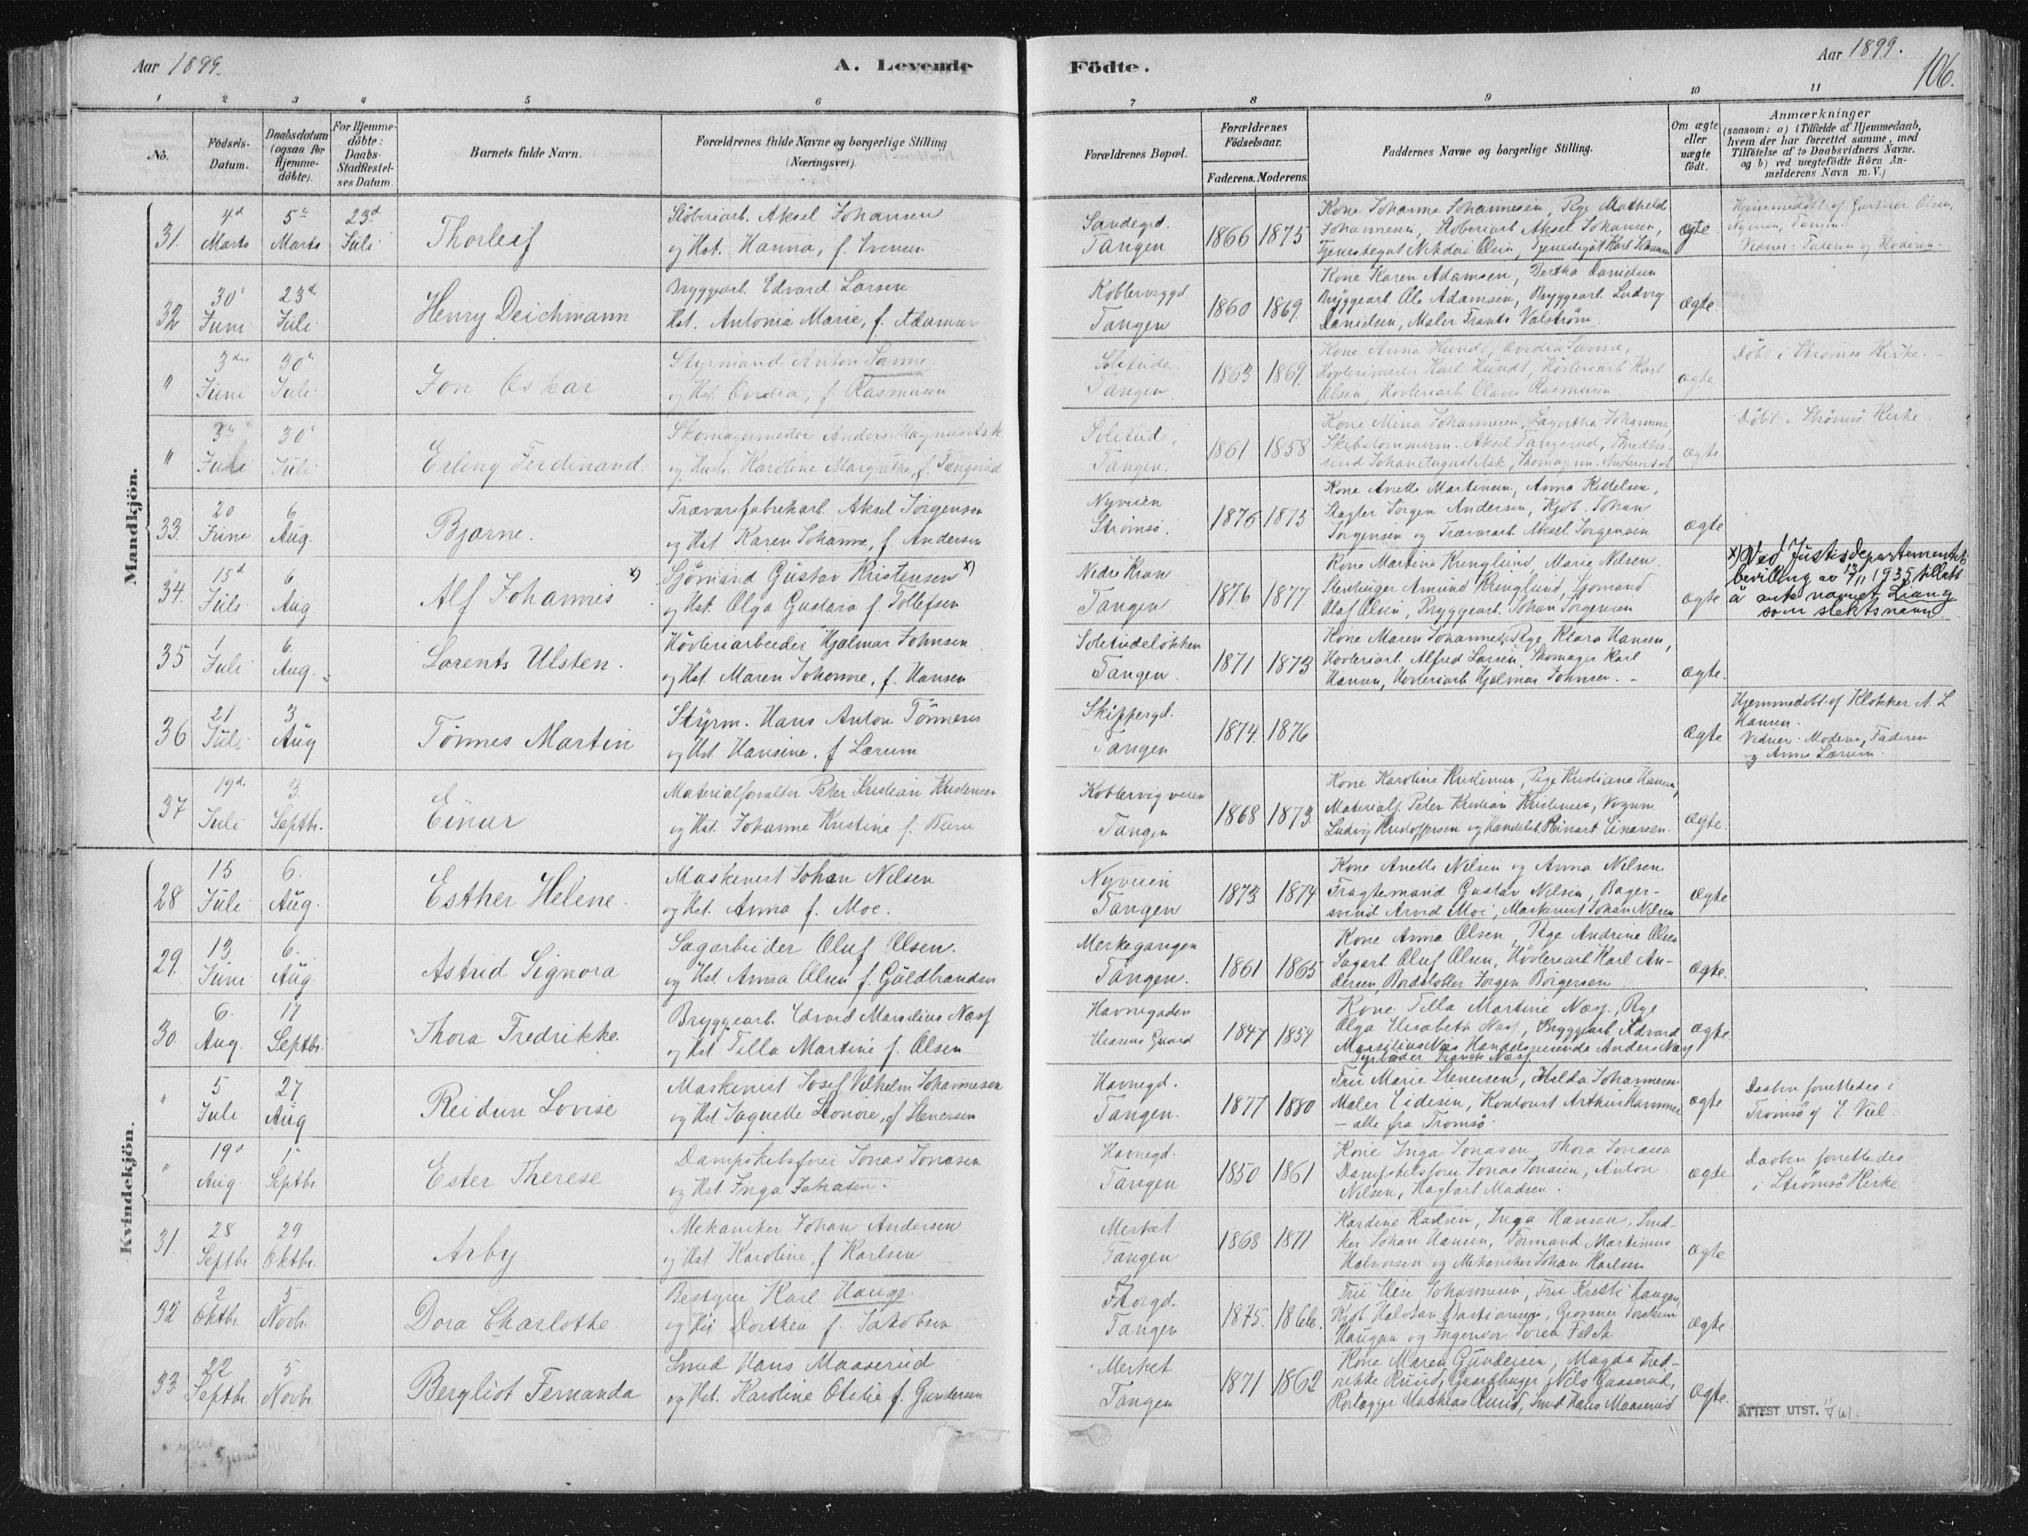 Aar 1899.
A. Levende
Födte.
Aar 1899.
106.
1 2 3 4 5 6 7 8 9 10 11
No.
Födsels-Datum.
Daabsdatum (ogsaa for Hjemmedöbte).
For Hjemmedöbte: Daabs-Stadfæstelses Datum
Barnets fulde Navn.
Forældrenes fulde Navne og borgerlige Stilling (Næringsvei).
Forældrenes Bopæl.
Forældrenes Födselsaar.
Faderens. Moderens.
Faddernes Navne og borgerlige Stilling.
Om ægte eller uægte födt.
Anmærkninger
(saasom: a) i Tilfælde af Hjemmedaab,
hvem der har forrettet samme, med
Tilföielse af to Daabsvidners Navne,
og b) ved uægtefödte Börn An-
melderens Navn m. V.)
Mandkjön.
31. 4d Marts 5te Marts 23d Juli Thorleif
Støberiarb. Aksel Johansen
og Hst. Hanna, f. Svensen
Sandegd. Tangen 1866 1875
Kone Johanne Johannesen, Pige Mathilde
Johannesen, Støberiarb. Aksel Johansen,
Tjenestegut Nikolai Olsen, Tjenestegut Karl Johansen
ægte
Hjemmedøbt af Gartner Olsen,
Nyveien, Tangen.
Vidner: Faderen og Moderen.
32 30 Juni 23d Juli Henry Deichmann
Bryggearb. Edvard Larsen
Hst. Antonia Marie, f. Adamsen
Koblerveigd Tangen 1860 1869.
Kone Karen Adamsen, Bertha Danielsen
Bryggearb. Ole Adamsen, Bryggearb. Ludvig
Danielsen, Maler Frants Valstrøm.
ægte
" 3die Juni 30 Juli Jon Oskar
Styrmand Anton Sanne
og Hst. Ovidia, f. Rasmussen
Solitude. Tangen 1863 1869.
Kone Anna Hundt, Ovidia Sanne,
Høvlerimester Karl Hundt, Høvleriarb Karl
Olsen, Høvleriarb. Olaves Rasmussen
ægte
Døbt i Strømsø Kirke.
" 3die Juli 30 Juli Erling Ferdinand.
Skomagermester Anders Magnus Ask
og Hust. Karoline Margrethe, f. Tangerud
Solitude, Tangen. 1861 1858
Kone Mina Johannesen, Lagertha Johannesen,
Skibstømmerm. Aksel Tangerud, Snedker-
svend Johan August Ask, Skomagerm. Anders Ask
ægte
Døbt i Strømsø Kirke.
33. 20 Juni 6 Aug. Bjarne.
Trævarefabrikarb. Aksel Jørgensen
og Hst. Karen Johanne, f. Andersen
Nyveien Strømsø. 1876 1873
Kone Anette Martinsen, Anna Kittelsen,
Slagter Jørgen Andersen, Kjøb. Johan
Jørgensen og Trævarearb. Aksel Jørgensen
ægte
34. 15d Juli 6 Aug Alf Johannes x)
Sjømand Gustav Kristensen x)
og Hst. Olga Gustava f. Tollefsen
Nedre Kran Tangen 1876 1877
Kone Martine Krenglund, Marie Nilsen.
Stenhuger Amund Krenglund, Sjømand
Olaf Olsen, Bryggearb. Johan Jørgensen
ægte
x) Ved Justisdepartementets
bevilling av 13/11 1935 tillatt
å anta navnet Liang
som slektsnavn.
35 1 Juli 6. Aug. Lorents Ulsten.
Høvleriarbeider Hjalmar Johnsen
og Hst. Maren Johanne, f. Hansen
Solitudeløkken Tangen. 1871 1873
Kone Maren Johannesen, Pige, Klara Hansen,
Høvleriarb. Alfred Larsen, Skomager Karl
Hansen, Høvleriarb Hjalmar Johnsen.
ægte.
36 21 Juli 3 Aug Tønnes Martin
Styrm. Hans Anton Tønnesen
og Hst. Hansine, f Lærum
Skippergd. Tangen 1874. 1876
Ægte
Hjemmedøbt af Klokker A. L
Hansen.
Vidner: Moderen, Faderen
og Anne Lærum.
37 19d. Juli 3 Septbr. Einar
Materialforvalter Peter Kristian Kristensen
og Hst. Johanne Kristine f. Bure
Koblervigveien Tangen 1868 1873
Kone Karoline Kristensen, Pige Kristiane Hansen,
Materialf. Peter Kristian Kristensen, Vognm.
Ludvig Kristoffersen og Handelsb. Reinart Einarsen.
ægte.
Kvindekjön.
28 15 Juli 6. Aug. Esther Helene.
Maskinist Johan Nilsen
og Hst. Anna f. Moe.
Nyveien Tangen. 1873 1874
Kone Anette Nilsen og Anna Nilsen
Fragtemand Gustav Nilsen, Bager-
svend Arvid Moe, Maskinist Johan Nilsen
ægte
29. 13 Juni 6. Aug. Astrid Signora
Sagarbeider Oluf Olsen.
og Hst Anna Olsen f. Guldbrandsen
Merkegangen Tangen. 1861 1865
Kone Anna Olsen, Pige Andrine Olsen
Sagarb. Oluf Olsen, Høvleriarb Karl An-
dersen, Bordstabler Jørgen Børgersen
ægte.
30. 6. Aug. 17 Septbr. Thora Fredrikke.
Bryggearb. Edvard Marselius Næss
og Hst Tilla Martine f. Olsen
Havnegaden 1847 1859
Kone Tilla Martine Næss, Pige
Olga Elisabeth Næss, Bryggearb. Edvard
Marselius Næss Handelsreisende Anders Næss
ægte
" 5 Juli 27 Aug. Reidun Lovise
Maskinist Josef Vilhelm Johannesen
og Hst Leonore, f Stenersen
Havnegd. Tangen. 1877 1880
Fru Marie Stenersen, Hilda Johannesen
Maler Eidesen, Kontorist Arthur Hammer
– alle fra Tromsø.
ægte
Daaben forrettedes i
Tromsø af E. Viel.
" 19d Aug. 1ste Septbr Ester Therese
Dampskibsfører Jonas Jonasen
og Hst. Inga Johansen.
Havnegd. Tangen 1850 1861
Kone Inga Jonasen, Thora Jonasen
Dampskibsfører Jonas Jonasen, Anton
Nilsen, Hagbart Madsen.
ægte
Daaben forrettedes
i Strømsø Kirke
31. 28 Septbr. 29 Oktbr. Arby
Mekaniker Johan Andersen
og Hst Karoline, f Karlsen
Merket Tangen 1868 1871
Kardine Karlsen, Inga Hansen, Smed-
ker Johan Hansen, Formand Martinus
Halvorsen og Mekaniker Johan Karlsen
ægte
32 2 Oktbr. 5 Novbr. Dora Charlotte
Bestyrer Karl Hauge
og Hst Dorthea f. Jakobsen
Storgd. Tangen 1875. 1866.
Fru Elise Johannesen, Fru Kristi Haugan,
Haugan og Ingeniør Søren Falck
ægte
33 22 Septbr. 5 Novbr. Bergliot Fernanda
Smed Hans Maaserud
og Hst. Karoline Otilie f. Gundersen
Merket Tangen 1871 1862
Kone Maren Gundersen, Magda Fred-
rikke Ruud, Nils Gaaserud,
Rørlægger Mathias Ruud, Smed Hans Maaserud
ægte.
ATTEST UTST.